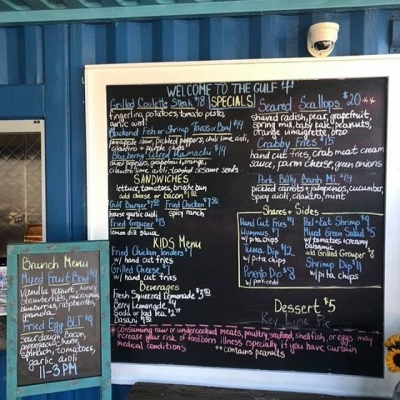 WELCOME TO THE GULF
SPECIALS
Grilled Coulotte Steak $18
fingerling potatoes, tomato pesto,
garlic aioli
Blackend Fish or Shrimp Tacos or Bowl $14
pineapple slaw, pickled peppers, chili lime aioli,
cilantro + purple
Blueberry Cured Hamachi
shaved peppers, grapefruit, orange,
cilantro lime aioli, toasted sesame seeds
SANDWICHES
lettuce, tomatoes, brioche bun
add cheese or bacon
Gulf Burger
house garlic aioli
Fried Chicken
spicy ranch
Fried Grouper $13
lemon dill sauce
KIDS Menu
Fried Chicken Tenders
w/ hand cut fries
Grilled Cheese
w/ hand cut fries
Beverages
Fresh Squeezed Lemonade
Berry Lemonade $4
Soda or Iced Tea
Dasani
Seared Scallops $20 **
shaved radish, pear, grapefruit,
spring mix, baby kale, peanuts,
orange vinaigrette, orzo
Crabby Fries $15
hand cut fries, crab meat cream
sauce, parm cheese, green onions
Pork Belly Banh Mi $14
pickled carrots + jalapenos, cucumber,
spicy aioli, cilantro, mint
Shares + Sides
Hand Cut Fries
Hummus
w/ pita chips
Tuna Dip $12
w/ pita chips
Pimento Dip $8
w/ pork rinds
Peel + Eat Shrimp
Mixed Green Salad $5
w/ tomatoes + creamy
balsamic
add Grilled Grouper $8
Shrimp Dip $11
w/ pita chips
Dessert $5
Key Lime Pie
* Consuming raw or undercooked meats, poultry, seafood, shellfish, or eggs may
increase your risk of foodborn illness especially if you have certain
medical conditions
** contains peanuts
Brunch Menu
Mixed Fruit Bowl $9
Vanilla yogurt, honey
strawberries, microgreens
blueberries,
granola
Fried Egg BLT $9
Sourdough, bacon,
pepperjack cheese,
spinach, tomatoes,
garlic aioli
11-3 PM